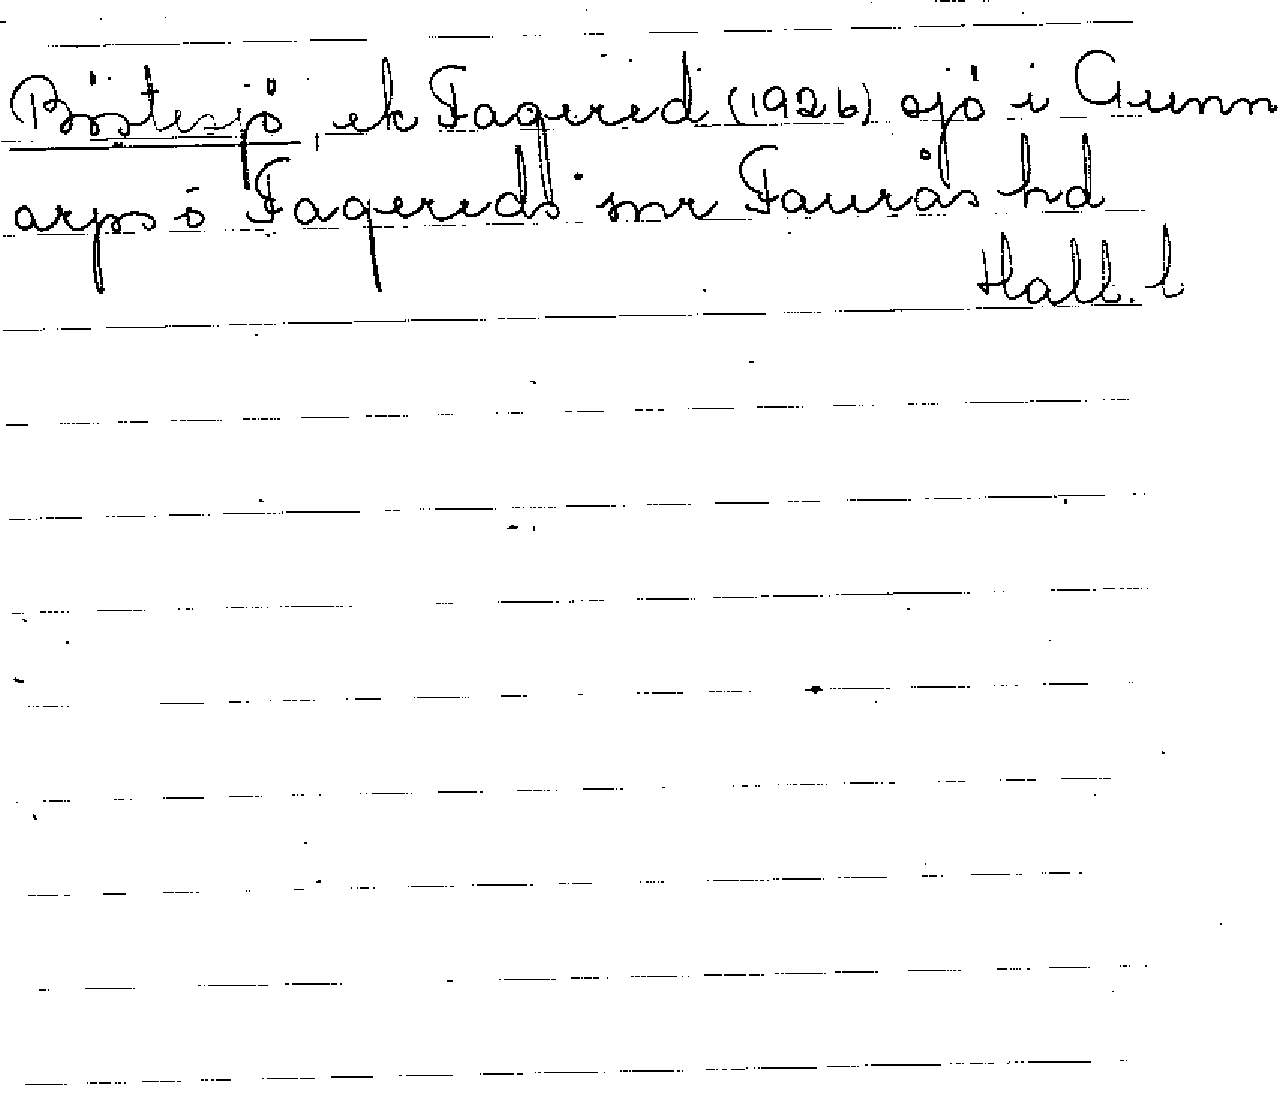 Böstesjö, ek Fagered (1926) sjö i Gunn
arps o Fagereds snr Faurås hd
Hall. l